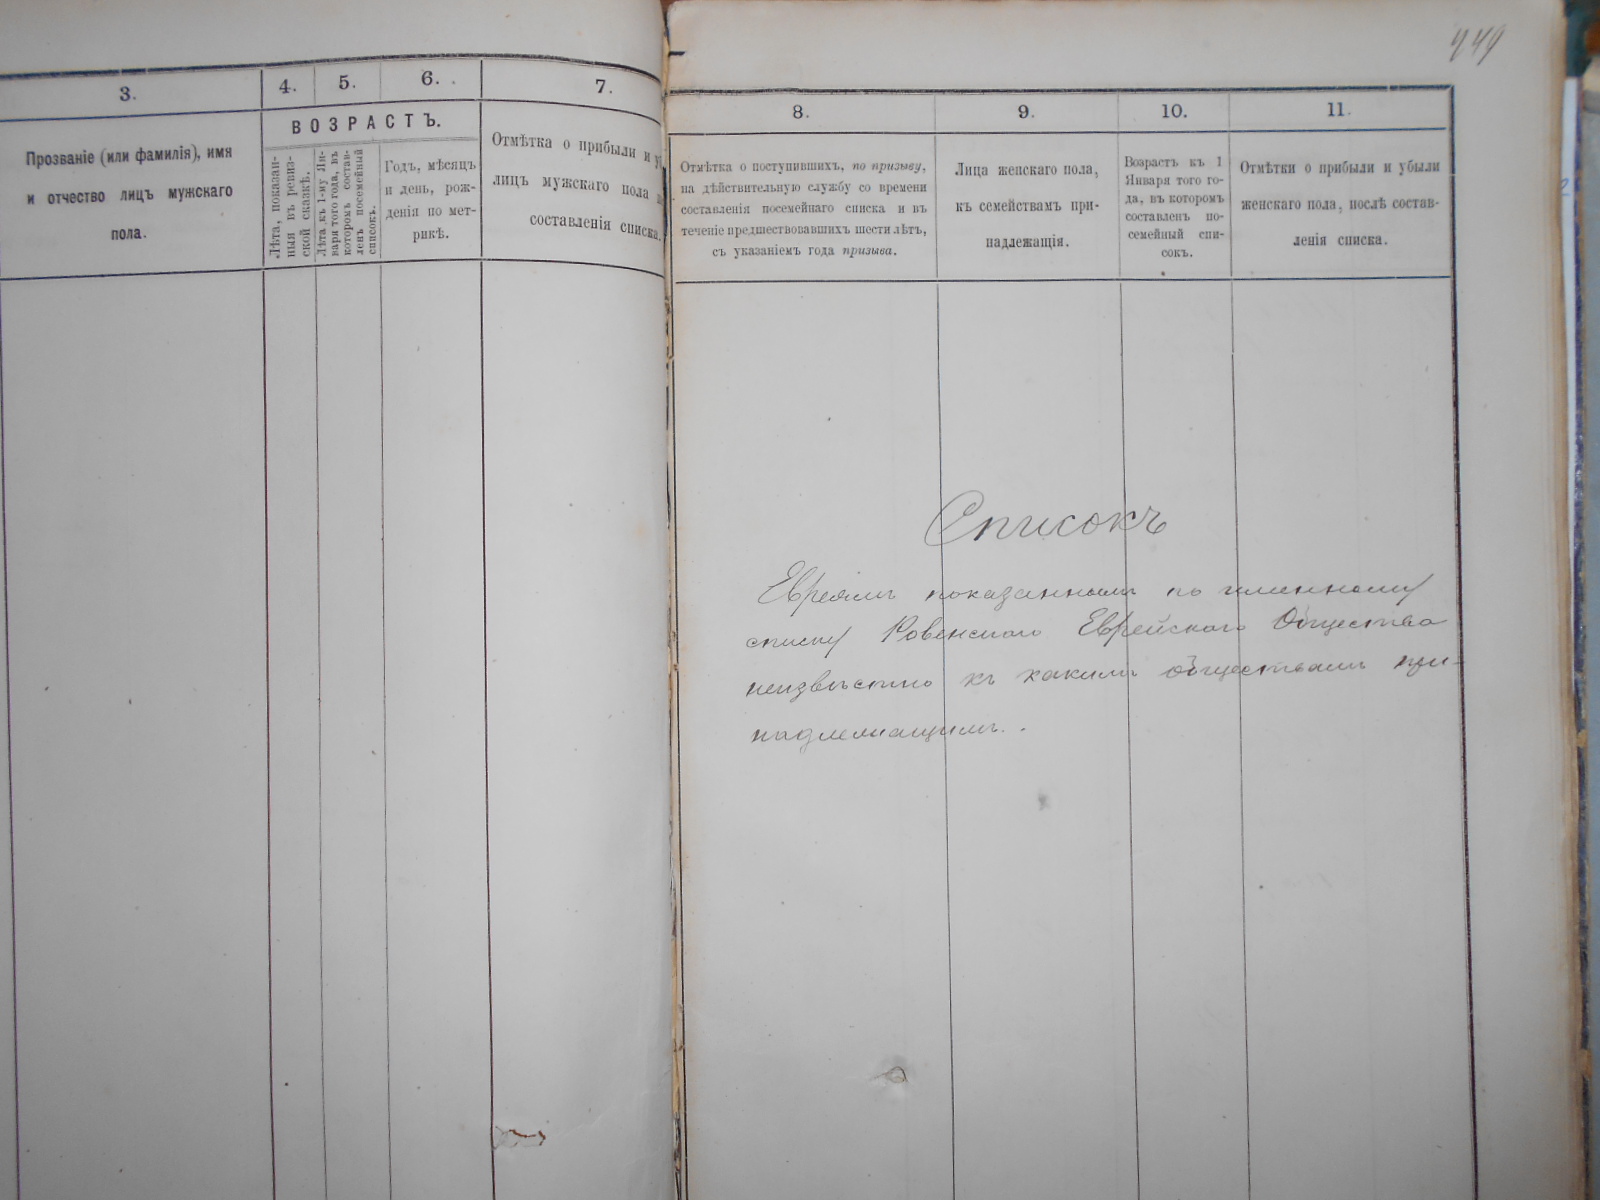 3.
4.
5.
6.
7.
ВОЗРАСТЪ.
Прозваніе (или фамилія), имя
и отчество лицъ мужскаго
пола.
Лѣта, показан-
ныя въ ревиз-
ской сказкѣ.
Лѣта къ 1-му Ян-
варя того года, въ
которомъ состав-
ленъ посемейный
списокъ.
Годъ, мѣсяцъ
и день, рож-
денія по мет-
рикѣ.
Отмѣтка о прибыли и
лицъ мужскаго пола
составленія списка.
449
8.
9.
10.
11.
Отмѣтка о поступившихъ, по призыву,
на дѣйствительную службу со времени
составленія посемейнаго списка и въ
теченіе предшествовавшихъ шести лѣтъ,
съ указаніемъ года призыва.
Лица женскаго пола,
къ семействамъ при-
надлежащія.
Возрастъ къ 1
Января того го-
да, въ которомъ
составленъ по-
семейный спи-
сокъ.
Отмѣтки о прибыли и убыли
женскаго пола, послѣ состав-
ленія списка.
Списокъ
Евреямъ показаннымъ по именному
списку Ровенскаго Еврейскаго Общества
неизвѣстно къ какимъ обществамъ при-
надлежащимъ.